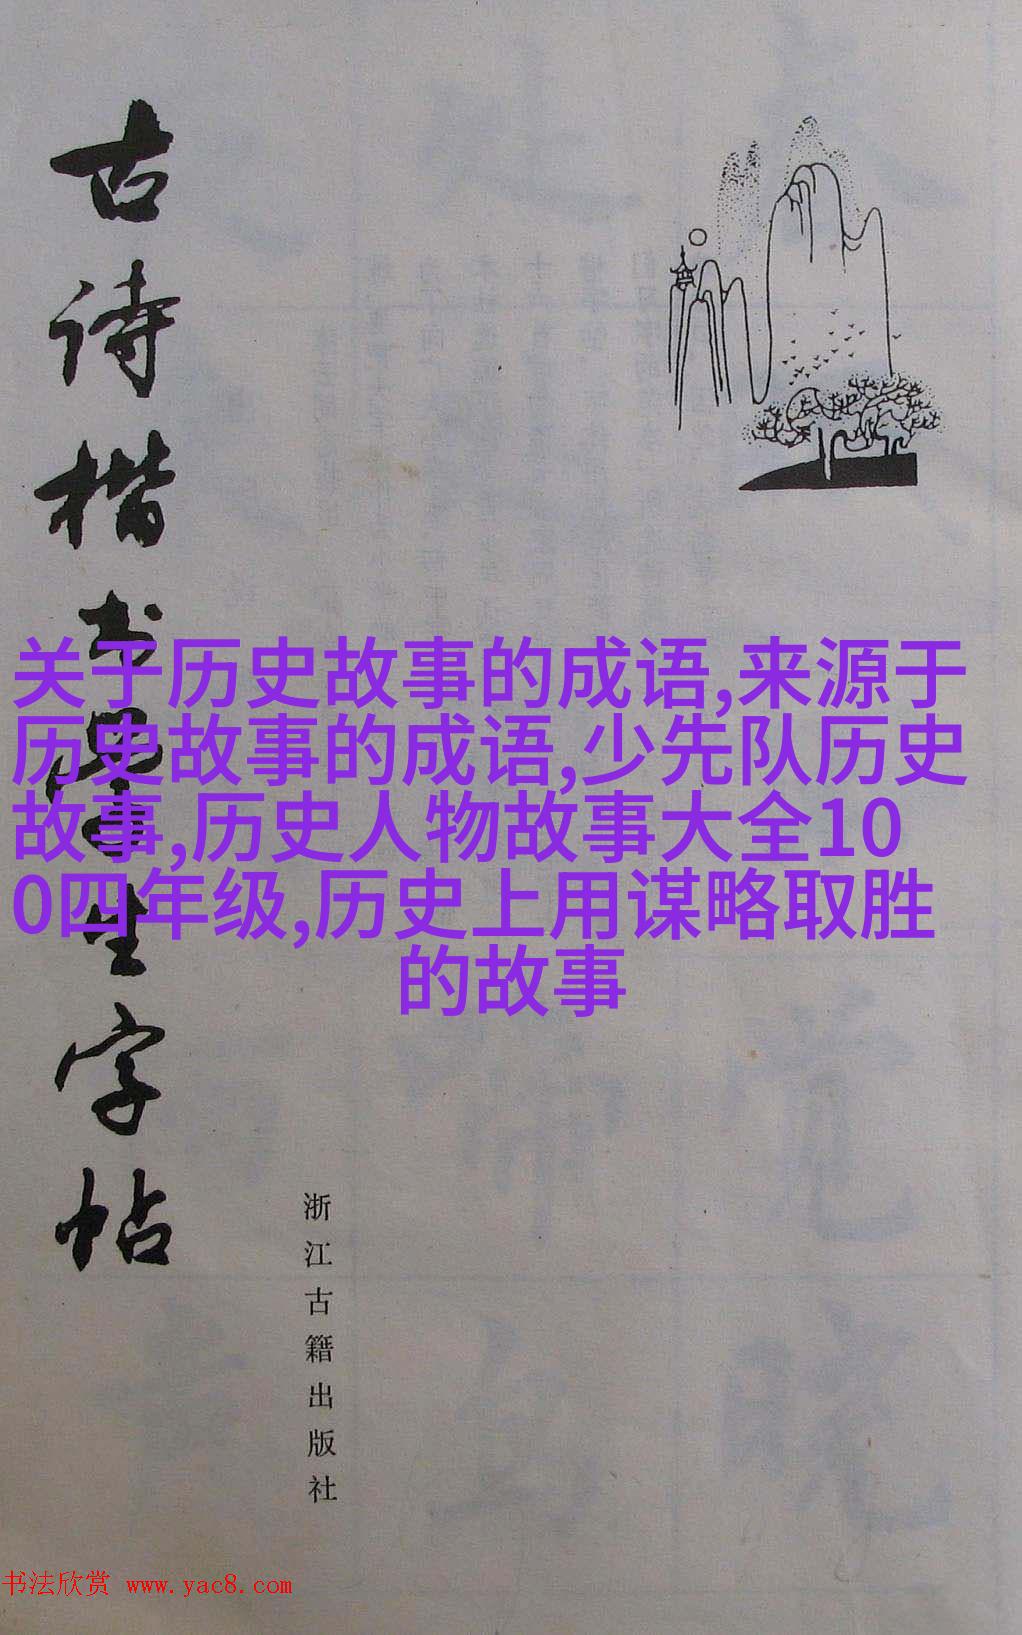 古诗楷书学生字帖
关于历史故事的成语,来源于
历史故事的成语,少先队历史
故事,历史人物故事大全10
0四年级,历史上用谋略取胜
的故事
浙江古籍出版社
书法欣赏 www.yac8.com